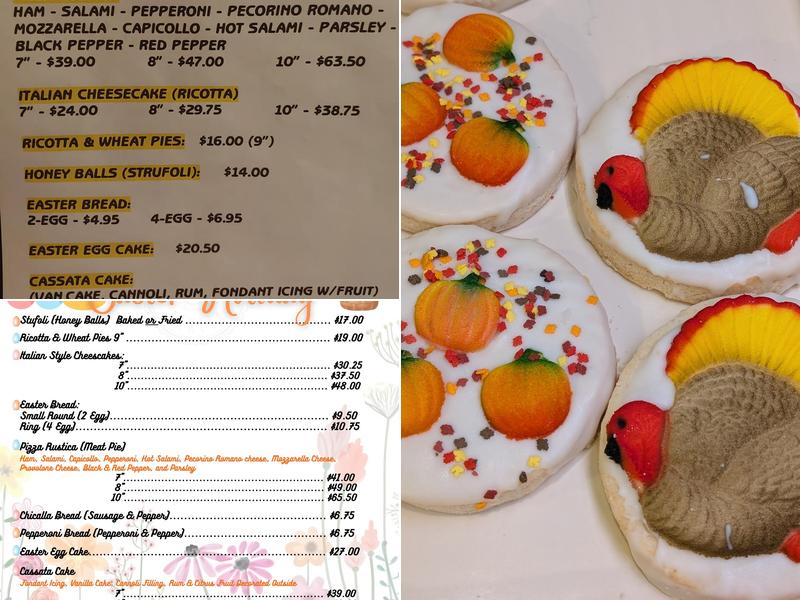 HAM - SALAMI - PEPPERONI - PECORINO ROMANO -
MOZZARELLA - CAPICOLLO - HOT SALAMI - PARSLEY -
BLACK PEPPER - RED PEPPER
7" - $39.00 8" - $47.00 10" - $63.50
ITALIAN CHEESECAKE (RICOTTA)
7" - $24.00 8" - $29.75 10" - $38.75
RICOTTA & WHEAT PIES: $16.00 (9")
HONEY BALLS (STRUFOLI): $14.00
EASTER BREAD:
2-EGG - $4.95 4-EGG - $6.95
EASTER EGG CAKE: $20.50
CASSATA CAKE:
(VAN CAKE, CANNOLI, RUM, FONDANT ICING W/FRUIT)
Stufoli (Honey Balls) Baked or Fried ........ $17.00
Ricotta & Wheat Pies 9" ........ $19.00
Italian Style Cheescakes:
7" ........ $30.25
8" ........ $37.50
10" ........ $48.00
Easter Bread:
Small Round (2 Egg) ........ $9.50
Ring (4 Egg) ........ $10.75
Pizza Rustica (Meat Pie)
Ham, Salami, Capicolo, Pepperoni, Hot Salami, Pecorino Romano cheese, Mozzarella Cheese,
Provolone Cheese, Black & Red Pepper, and Parsley
7" ........ $41.00
8" ........ $49.00
10" ........ $65.50
Chicalla Bread (Sausage & Pepper) ........ $6.75
Pepperoni Bread (Pepperoni & Pepper) ........ $6.75
Easter Egg Cake ........ $27.00
Cassata Cake
Fondant Icing, Vanilla Cake, Cannoli Filling, Rum & Citrus Fruit Decorated Outside
7" ........ $39.00